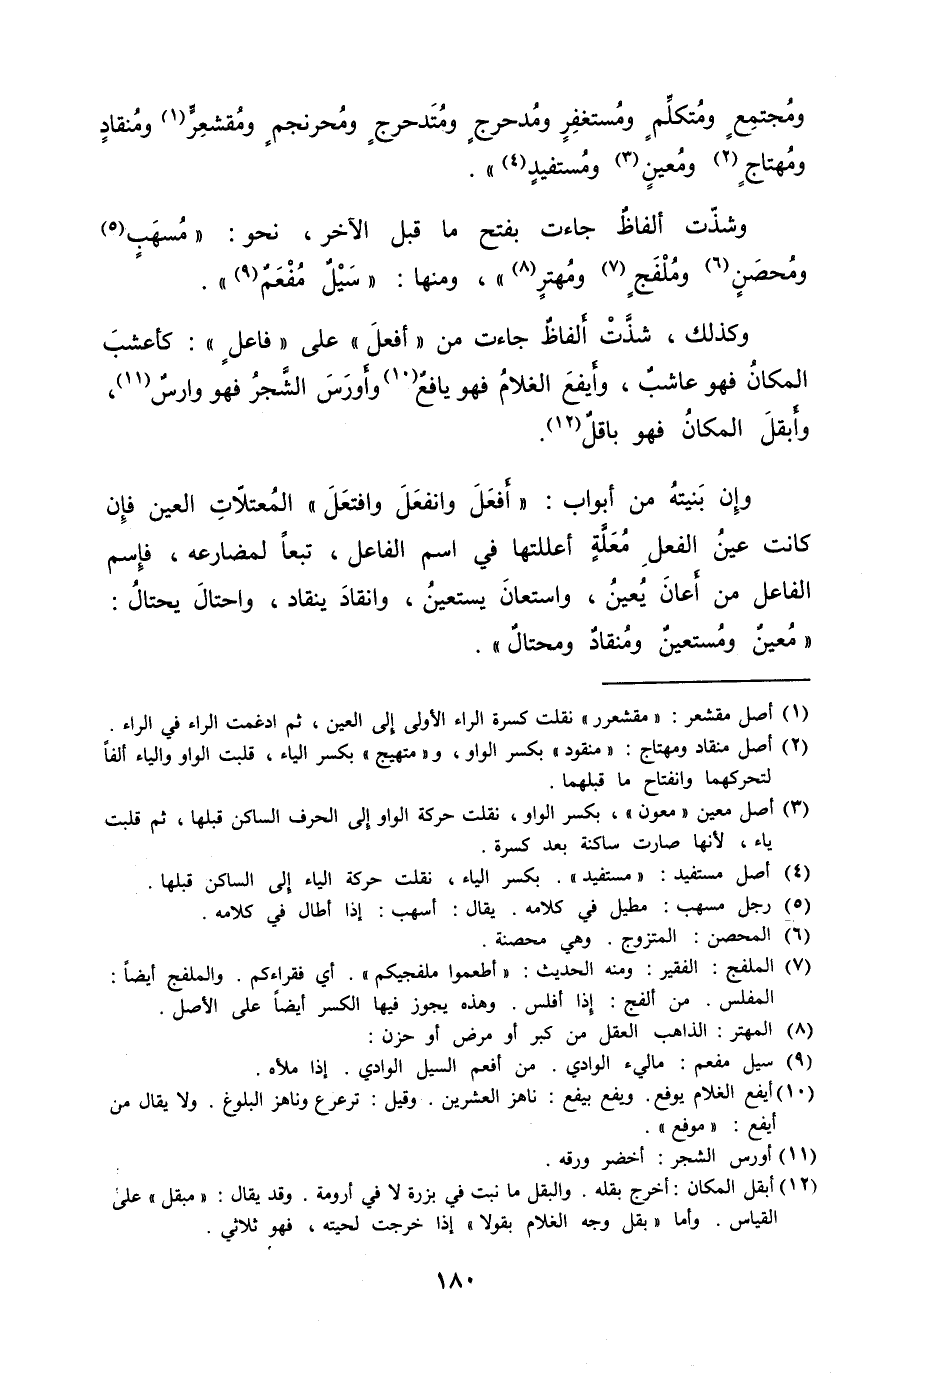 ومُجتمِعٍ ومُتكلِّمٍ ومُستغفِرٍ ومُدحرِجٍ ومُتَدحرِجٍ ومُحرنجمٍ ومُقشعِرٍّ(١) ومُنقادٍ
ومُهتاجٍ(٢) ومُعينٍ(٣) ومُستفيدٍ(٤) » .
وشذّت ألفاظٌ جاءت بفتح ما قبل الآخر ، نحو : « مُسهَبٍ(٥)
ومُحصَنٍ(٦) ومُلْفَجٍ(٧) ومُهترٍ(٨) » ، ومنها : « سَيْلٌ مُفْعَمٌ(٩) » .
وكذلك ، شذَّتْ أَلفاظٌ جاءت من « أفعلَ » على « فاعلٍ » : كأعشبَ
المكانُ فهو عاشبٌ ، وأَيفعَ الغلامُ فهو يافعٌ(١٠) وأَورَسَ الشَّجرُ فهو وارسٌ(١١) ،
وأَبقلَ المكانُ فهو باقلٌ(١٢).
وإن بَنيتهُ من أبواب : « أَفعَلَ وانفعَلَ وافتعَلَ » المُعتلّاتِ العين فإِن
كانت عينُ الفعلِ مُعَلَّةٍ أعللتها في اسم الفاعل ، تبعاً لمضارعه ، فإِسم
الفاعل من أَعانَ يُعينُ ، واستعانَ يستعينُ ، وانقادَ ينقاد ، واحتالَ يحتالُ :
« مُعينٌ ومُستعينٌ ومُنقادٌ ومحتالٌ » .
(١) أصل مقشعر : « مقشعرر » نقلت كسرة الراء الأولى إلى العين ، ثم ادغمت الراء في الراء .
(٢) أصل منقاد ومهتاج : « منقود » بكسر الواو ، و « متهيج » بكسر الياء ، قلبت الواو والياء ألفاً
لتحركهما وانفتاح ما قبلهما .
(٣) أصل معين « معون » ، بكسر الواو ، نقلت حركة الواو إلى الحرف الساكن قبلها ، ثم قلبت
ياء ، لأنها صارت ساكنة بعد كسرة .
(٤) أصل مستفيد : « مستفيد » . بكسر الياء ، نقلت حركة الياء إلى الساكن قبلها .
(٥) رجل مسهب : مطيل في كلامه . يقال : أسهب : إذا أطال في كلامه .
(٦) المحصن : المتزوج . وهي محصنة .
(٧) الملفج : الفقير : ومنه الحديث : « أطعموا ملفجيكم » . أي فقراءكم . والملفج أيضاً :
المفلس . من ألفج : إذا أفلس . وهذه يجوز فيها الكسر أيضاً على الأصل .
(٨) المهتر : الذاهب العقل من كبر أو مرض أو حزن :
(٩) سيل مفعم : ماليء الوادي . من أفعم السيل الوادي . إذا ملأه .
(١٠) أيفع الغلام يوفع. ويفع بيفع : ناهز العشرين . وقيل : ترعرع وناهز البلوغ . ولا يقال من
أيفع : « موفع » .
(١١) أورس الشجر : أخضر ورقه .
(١٢) أبقل المكان : أخرج بقله . والبقل ما نبت في بزرة لا في أرومة . وقد يقال : « مبقل » على
القياس . وأما « بقل وجه الغلام بقولا » إذا خرجت لحيته ، فهو ثلاثي .
١٨٠